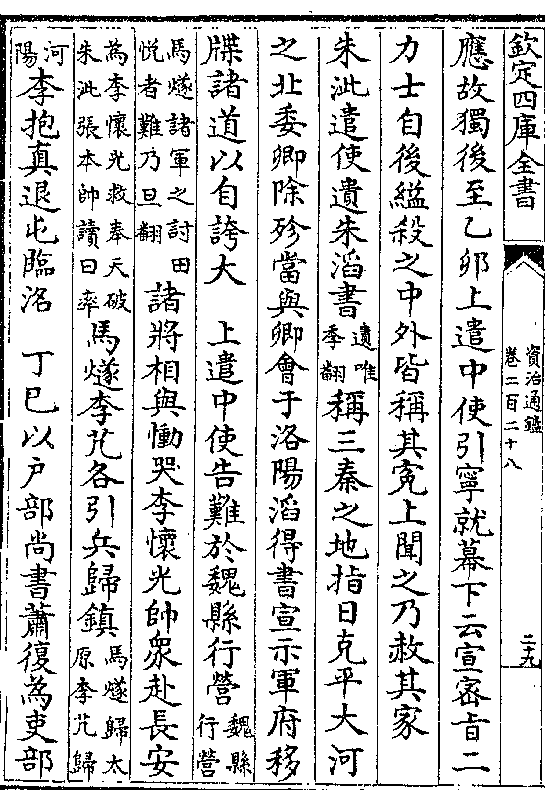 欽定四庫全書
資治通鑑
卷二百二十八
二十九
應故獨後至乙卯上遣中使引寧就幕下云宣宻旨二
力士自後縊殺之中外皆稱其寃上聞之乃赦其家
朱泚遣使遺朱滔書遺唯季翻稱三秦之地指日克平大河
之北委卿除殄當與卿會于洛陽滔得書宣示軍府移
牒諸道以自誇大　上遣中使告難於魏縣行營魏縣行營
馬燧諸軍之討田悅者難乃旦翻諸將相與慟哭李懷光帥衆赴長安
為李懷光救奉天破朱泚張本帥讀曰率馬燧李芃各引兵歸鎮馬燧歸太原李芃歸
河陽李抱真退屯臨洺　丁巳以户部尚書蕭復為吏部